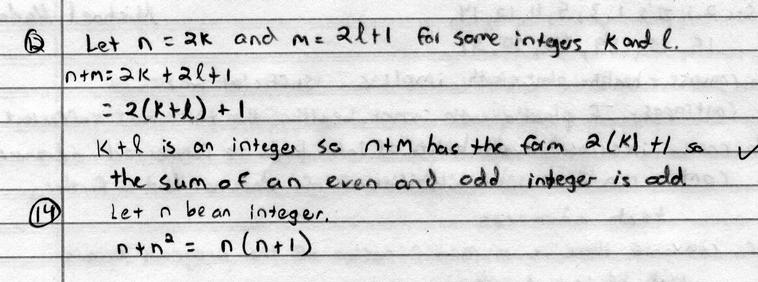 12 Let n = 2k and m = 2l+1 for some integers k and l.
n+m = 2k + 2l+1
= 2(k+l) + 1
k+l is an integer so n+m has the form 2(k)+1 so ✓
the sum of an even and odd integer is odd
14 Let n be an integer.
n+n² = n(n+1)